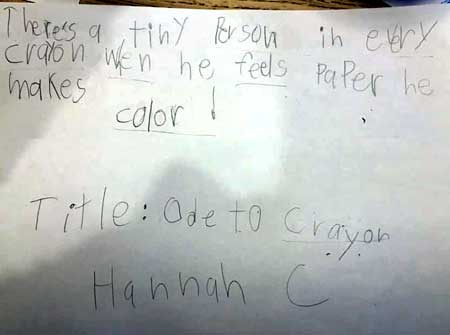 There's a tiny Person in every
crayon wen he feels PaPer he
makes
color!
Title: Ode to Crayon
Hannah C